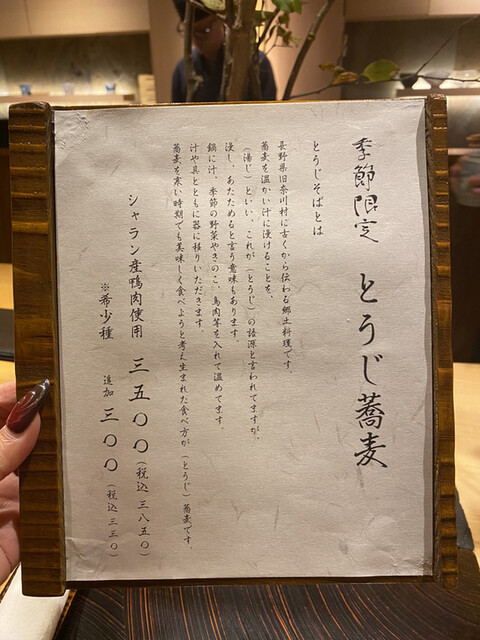 季節限定 とうじ蕎麦
とうじそばとは
長野県旧奈川村に古くから伝わる郷土料理です。
蕎麦を温かい汁に浸けることを、
（湯じ）といい、これが（とうじ）の語源と言われてますが、
浸し、あたためると言う意味もあります
鍋に汁、季節の野菜やきのこ、鳥肉等を入れて温めてます。
汁や具とともに器に移りいただきます。
蕎麦を寒い時期でも美味しく食べようと考え生まれた食べ方が（とうじ）蕎麦です。
シャラン産鴨肉使用 三五〇〇（税込三八五〇）
※希少種 追加 三〇〇（税込三三〇）